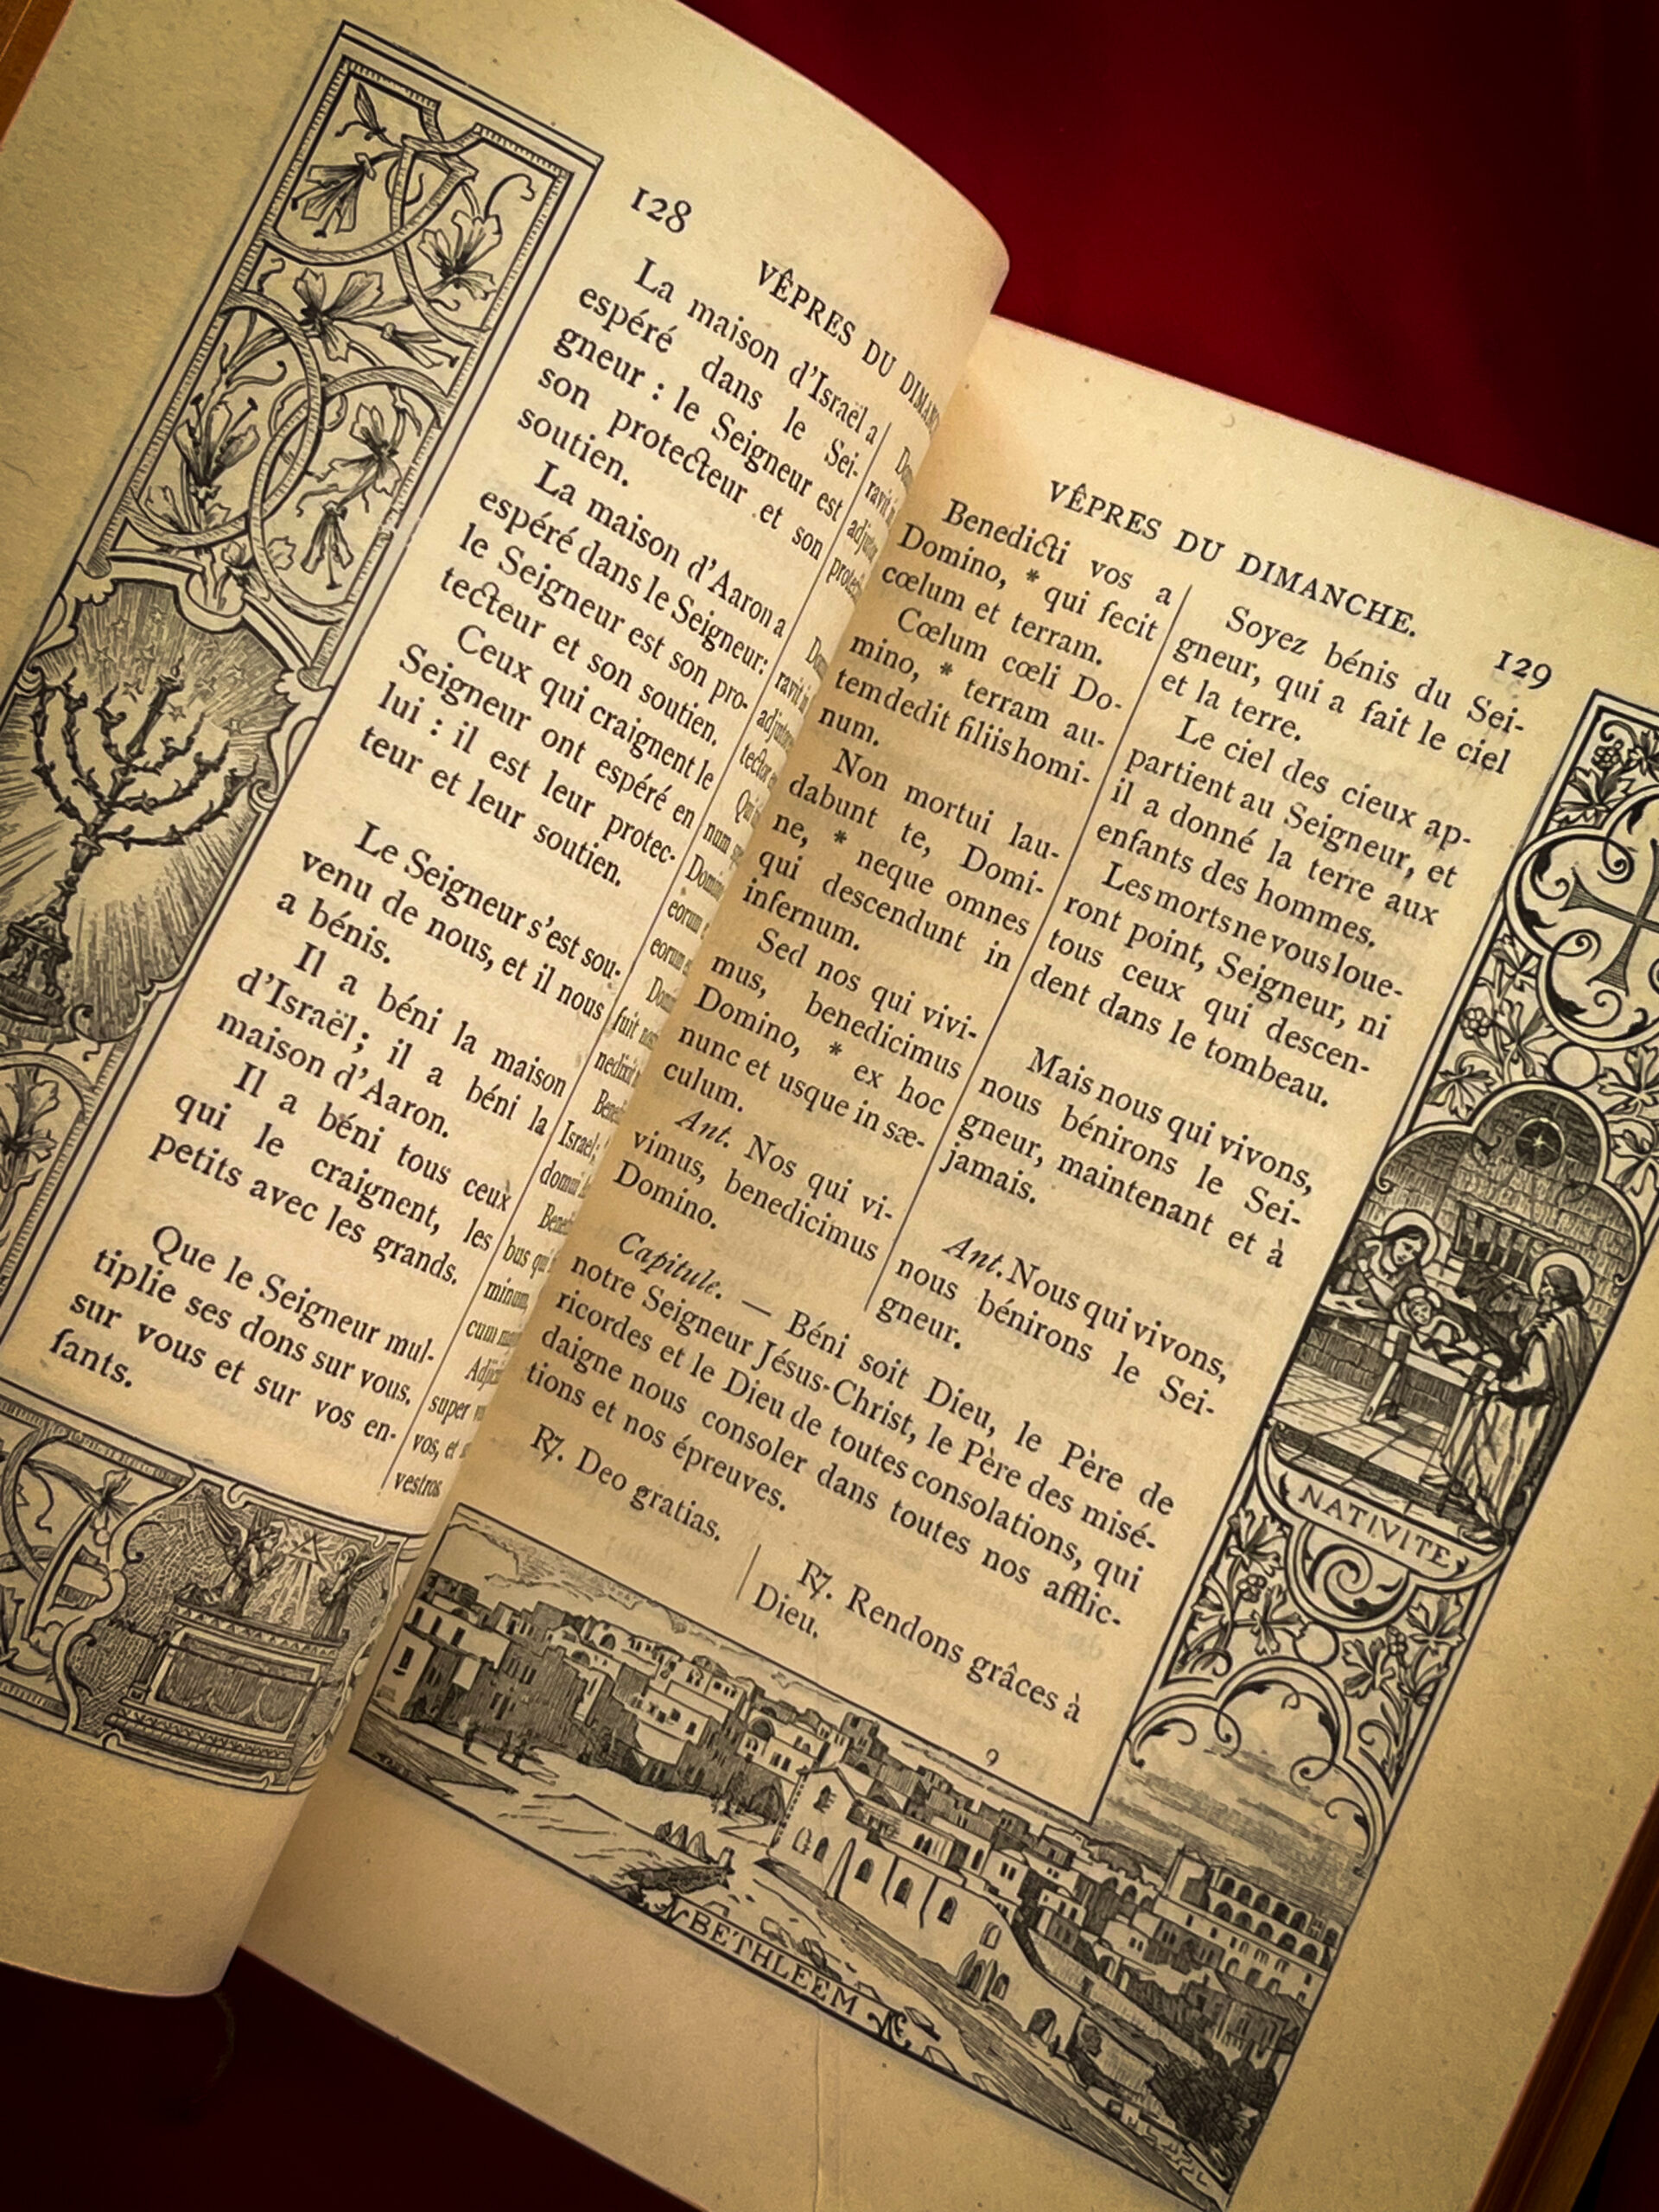 128
VÊPRES DU
La maison d'Israël a
espéré dans le Sei-
gneur : le Seigneur est
son protecteur et son
soutien.
La maison d'Aaron a
espéré dans le Seigneur:
le Seigneur est son pro-
tecteur et son soutien.
Ceux qui craignent le
Seigneur ont espéré en
lui : il est leur protec-
teur et leur soutien.
Le Seigneur s'est sou-
venu de nous, et il nous
a bénis.
Il a béni la maison
d'Israël; il a béni la
maison d'Aaron.
Il a béni tous ceux
qui le craignent, les
petits avec les grands.
Que le Seigneur mul-
tiplie ses dons sur vous,
sur vous et sur vos en-
fants.
ravit in
eorum
eorum
Israel;
minum,
super
vos, et
vestros
VÊPRES DU DIMANCHE.
129
Benedicti vos a
Domino, * qui fecit
cœlum et terram.
Cœlum cœli Do-
mino, * terram au-
temdedit filiis homi-
num.
Non mortui lau-
dabunt te, Domi-
ne, * neque omnes
qui descendunt in
infernum.
Sed nos qui vivi-
mus, benedicimus
Domino, * ex hoc
nunc et usque in sæ-
culum.
Ant. Nos qui vi-
vimus, benedicimus
Domino.
Soyez bénis du Sei-
gneur, qui a fait le ciel
et la terre.
Le ciel des cieux ap-
partient au Seigneur, et
il a donné la terre aux
enfants des hommes.
Les morts ne vous loue-
ront point, Seigneur, ni
tous ceux qui descen-
dent dans le tombeau.
Mais nous qui vivons,
nous bénirons le Sei-
gneur, maintenant et à
jamais.
Ant. Nous qui vivons,
nous bénirons le Sei-
gneur.
Capitule. — Béni soit Dieu, le Père de
notre Seigneur Jésus-Christ, le Père des misé-
ricordes et le Dieu de toutes consolations, qui
daigne nous consoler dans toutes nos afflic-
tions et nos épreuves.
℟. Deo gratias.
℟. Rendons grâces à
Dieu.
9
NATIVITÉ
BETHLEEM